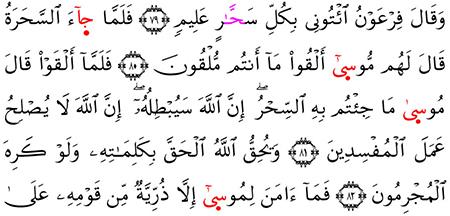 وَقَالَ فِرْعَوْنُ ٱئْتُونِى بِكُلِّ سَحَّـٰرٍ عَلِيمٍ ﴿٧٩﴾ فَلَمَّا جَآءَ ٱلسَّحَرَةُ
قَالَ لَهُم مُّوسَىٰٓ أَلْقُوا۟ مَآ أَنتُم مُّلْقُونَ ﴿٨٠﴾ فَلَمَّآ أَلْقَوْا۟ قَالَ
مُوسَىٰ مَا جِئْتُم بِهِ ٱلسِّحْرُ ۖ إِنَّ ٱللَّهَ سَيُبْطِلُهُۥٓ ۖ إِنَّ ٱللَّهَ لَا يُصْلِحُ
عَمَلَ ٱلْمُفْسِدِينَ ﴿٨١﴾ وَيُحِقُّ ٱللَّهُ ٱلْحَقَّ بِكَلِمَـٰتِهِۦ وَلَوْ كَرِهَ
ٱلْمُجْرِمُونَ ﴿٨٢﴾ فَمَآ ءَامَنَ لِمُوسَىٰٓ إِلَّا ذُرِّيَّةٌ مِّن قَوْمِهِۦ عَلَىٰ